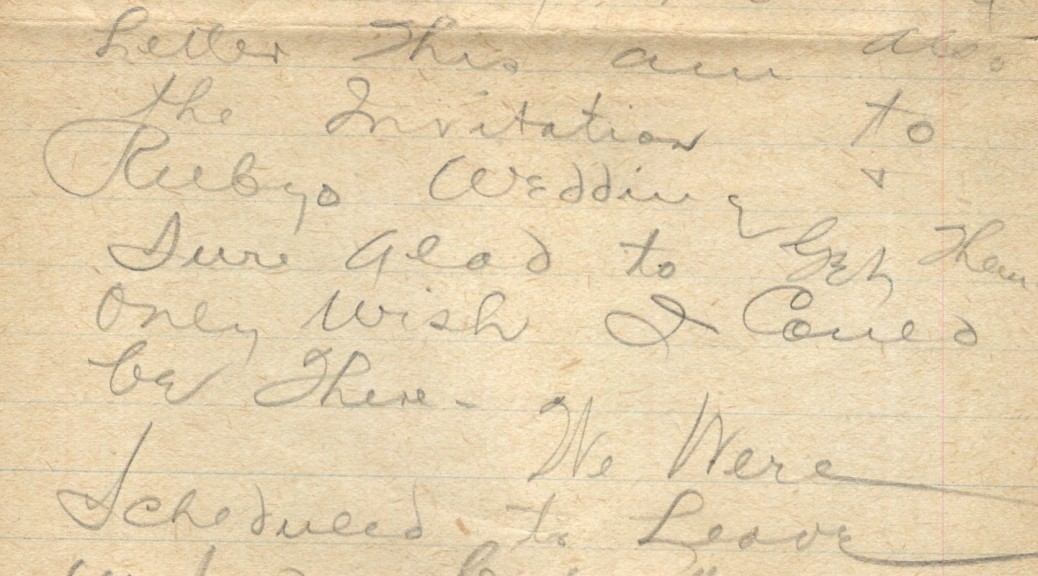 Letter This am also
the Invitation to
Rubys Wedding &
Sure Glad to Get Them
only wish I Could
be There - We Were
Scheduled to Leave